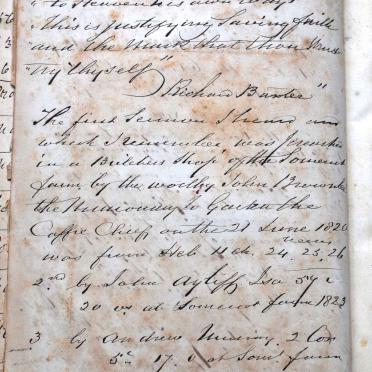 " to Heaven is own Way
This is justifying Saving faith
and the that thou
try thyself
" Richard Baxter "
The first Sermon I heard
which I remember, was preached
in a Butchers Shop of the Somerset
farm by the worthy John Brownlee
the Missionary to Gaika the
Caffre Chief on the 21 June 1820
was from Heb 11 ch. verses 24, 25, 26
2nd by John Ayliff Isa 5
20 vs at Somerset farm 1823
3 by Andrew Murray. 2 Cor
5th 17. v at Som. farm